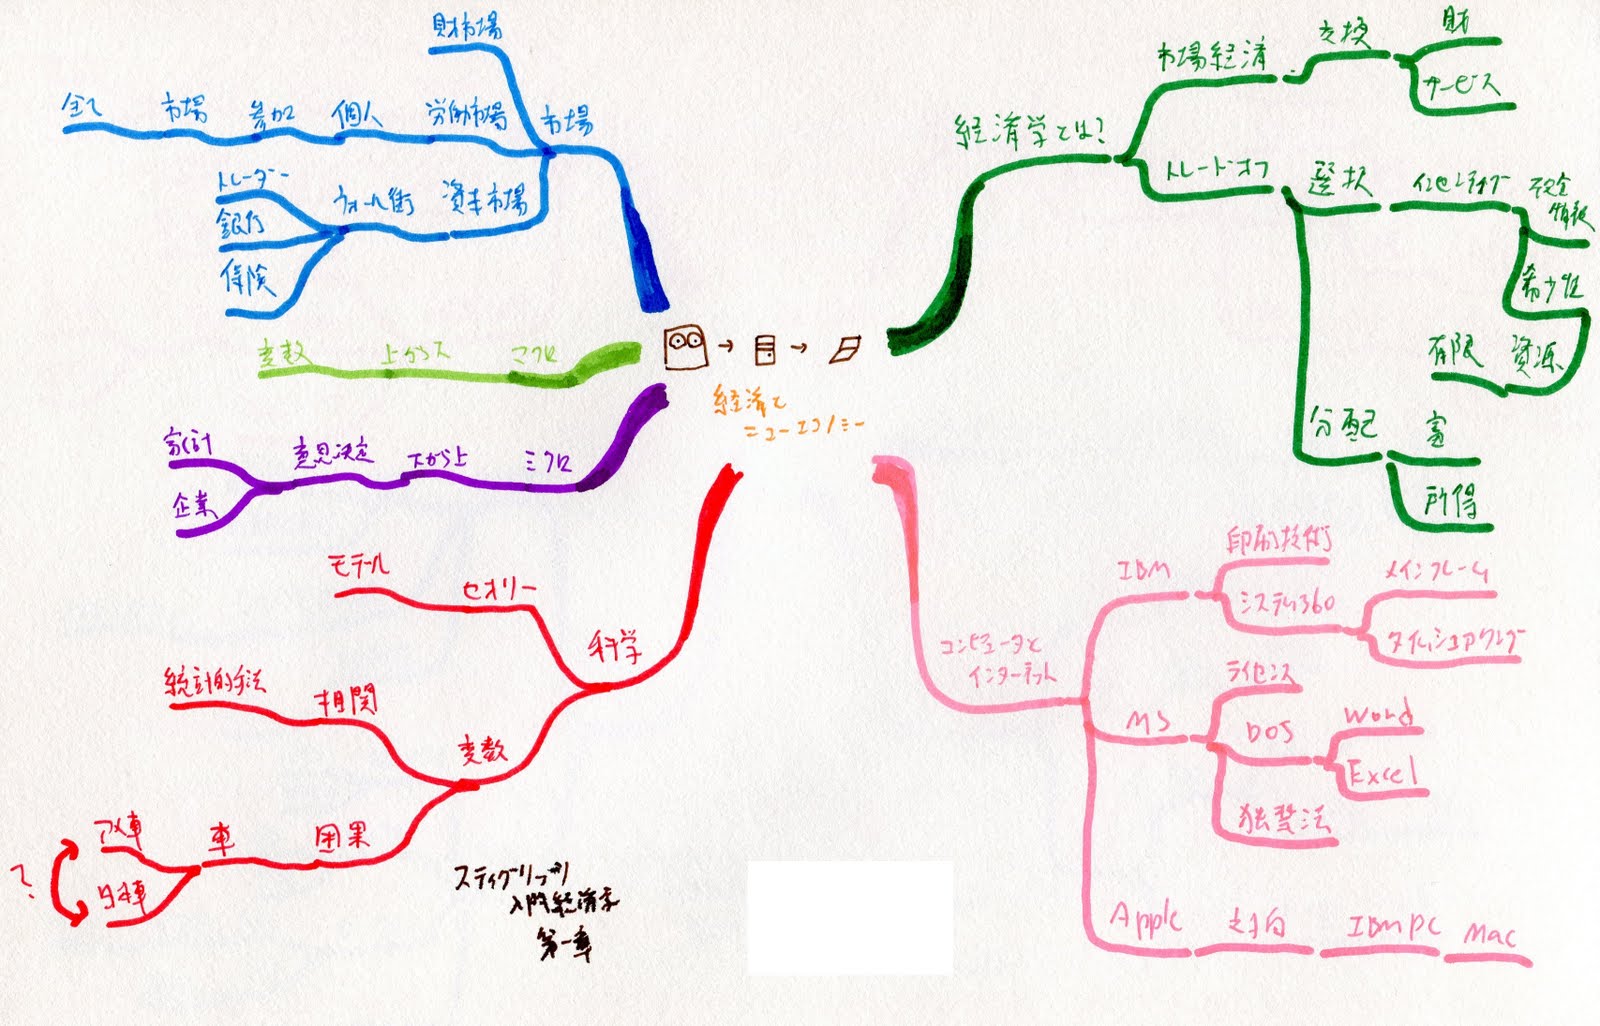 経済と
ニューエコノミー
経済学とは?
市場経済
交換
財
サービス
トレードオフ
選択
インセンティブ
不完全
情報
希少性
資源
有限
分配
富
所得
コンピュータと
インターネット
IBM
印刷技術
システム360
メインフレーム
タイムシェアリング
MS
ライセンス
DOS
Word
Excel
独禁法
Apple
対向
IBM PC
Mac
科学
セオリー
モデル
変数
相関
統計的手法
因果
車
アメ車
日本車
?
ミクロ
下から上
意思決定
家計
企業
マクロ
上から下
変数
市場
財市場
労働市場
個人
参加
市場
全て
資本市場
ウォール街
トレーダー
銀行
保険
スティグリッツ
入門経済学
第一章